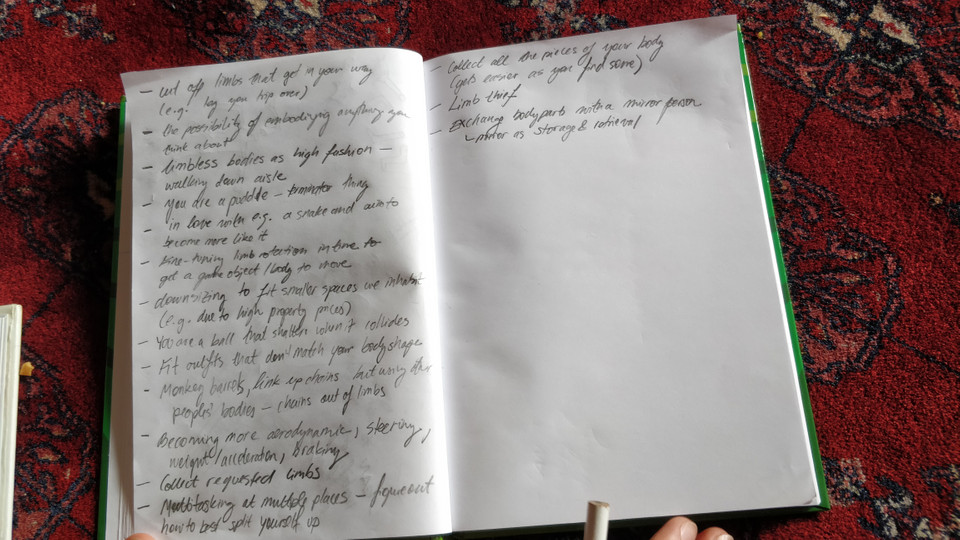 - cut off limbs that get in your way
(e.g. leg you trip over)
- the possibility of embodying anything you
think about
- limbless bodies as high fashion -
walking down aisle
- you are a puddle - thing
- in love with e.g. a snake and aim to
become more like it
- fine-tuning limb rotation in time to
get a game object / body to move
- downsizing to fit smaller spaces we inhabit
(e.g. due to high property prices)
- You are a ball that shatters when it collides
- Fit outfits that don't match your body shape
- Monkey barrels, link up chains but using other
peoples' bodies - chains out of limbs
- Becoming more aerodynamic, steering,
weight/acceleration, braking
- Collect requested limbs
- Multitasking at multiply places - figure out
how to best split yourself up
- Collect all the pieces of your body
(gets easier as you find some)
- Limb thief
- Exchange bodyparts with a mirror person
↳ mirror as storage & retrieval